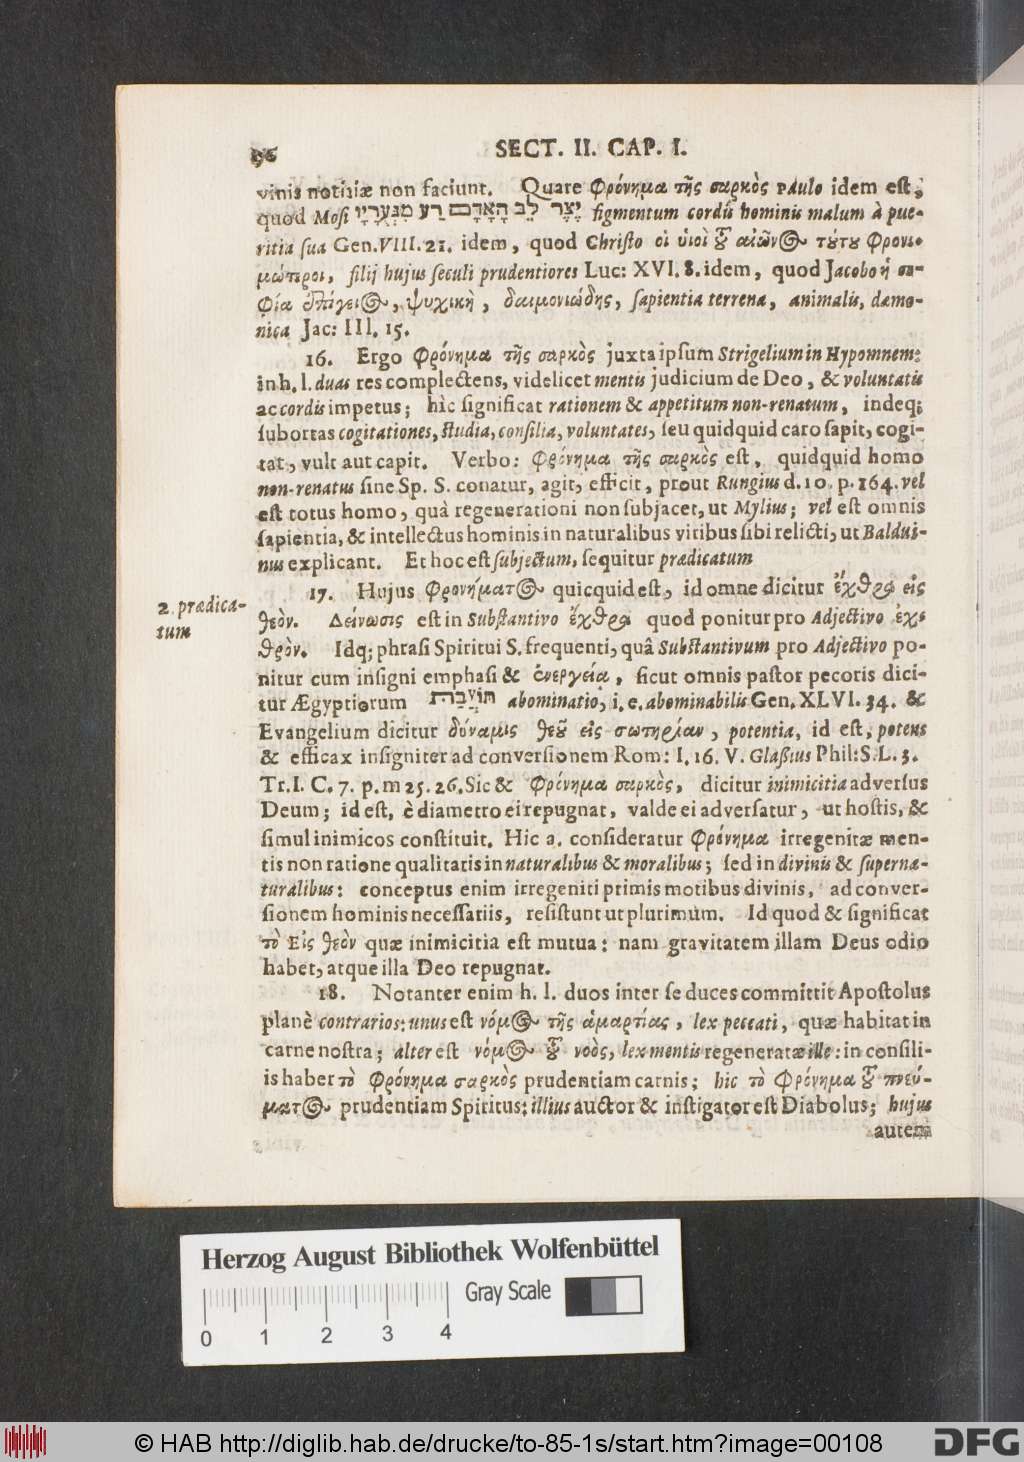 96
SECT. II. CAP. I.
vinis notitiæ non faciunt. Quare Φρόνημα τῆς σαρκὸς Paulo idem est,
quod Mosi יֵצֶר לֵב הָאָדָם רַע מִנְּעֻרָיו figmentum cordis hominis malum à pue-
ritia sua Gen. VIII. 21. idem, quod Christo οἱ ὑιοὶ τȣ͂ αἰῶν⊙ τȣ́τȣ Φρονι-
μώτεροι, filij hujus seculi prudentiores Luc: XVI. 8. idem, quod Jacobo ἡ σο-
Φία ἐπίγει⊙, ψυχικὴ, δαιμονιώδης, sapientia terrena, animalis, dæmo-
nica Jac: III. 15.
16. Ergo Φρόνημα τῆς σαρκὸς juxta ipsum Strigelium in Hypomnem:
in h. l. duas res complectens, videlicet mentis judicium de Deo, & voluntatis
ac cordis impetus; hîc significat rationem & appetitum non-renatum, indeq;
subortas cogitationes, studia, consilia, voluntates, seu quidquid caro sapit, cogi-
tat, vult aut capit. Verbo: Φρόνημα τῆς σαρκὸς est, quidquid homo
non-renatus sine Sp. S. conatur, agit, efficit, prout Rungius d. 10. p. 164. vel
est totus homo, quâ regenerationi non subjacet, ut Mylius; vel est omnis
sapientia, & intellectus hominis in naturalibus viribus sibi relicti, ut Baldui-
nus explicant. Et hoc est subjectum, sequitur prædicatum
2. prædica-
tum
17. Hujus Φρονήματ⊙ quicquid est, id omne dicitur ἔχθρα εἰς
θεὸν. Δείνωσις est in Substantivo ἔχθρα quod ponitur pro Adjectivo ἐχ-
θρὸν. Idq; phrasi Spiritui S. frequenti, quâ Substantivum pro Adjectivo po-
nitur cum insigni emphasi & ἐνεργεία, sicut omnis pastor pecoris dici-
tur Ægyptiorum תּוֹעֲבַת abominatio, i. e. abominabilis Gen. XLVI. 34. &
Evangelium dicitur δύναμις θεȣ͂ εἰς σωτηρίαν, potentia, id est, potens
& efficax insigniter ad conversionem Rom: I. 16. V. Glassius Phil: S. L. 3.
Tr. I. C. 7. p. m 25. 26. Sic & Φρόνημα σαρκὸς, dicitur inimicitia adversus
Deum; id est, è diametro ei repugnat, valde ei adversatur, ut hostis, &
simul inimicos constituit. Hic a. consideratur Φρόνημα irregenitæ men-
tis non ratione qualitatis in naturalibus & moralibus; sed in divinis & superna-
turalibus: conceptus enim irregeniti primis motibus divinis, ad conver-
sionem hominis necessariis, resistunt ut plurimùm. Id quod & significat
τὸ Εἰς θεὸν quæ inimicitia est mutua: nam gravitatem illam Deus odio
habet, atque illa Deo repugnat.
18. Notanter enim h. l. duos inter se duces committit Apostolus
planè contrarios: unus est νόμ⊙ τῆς ἁμαρτίας, lex peccati, quæ habitat in
carne nostra; alter est νόμ⊙ τȣ͂ νοὸς, lex mentis regeneratæ ille: in consili-
is haber τὸ Φρόνημα σαρκὸς prudentiam carnis; hic τὸ Φρόνημα τȣ͂ πνεύ-
ματ⊙ prudentiam Spiritus: illius auctor & instigator est Diabolus; hujus
autem
Herzog August Bibliothek Wolfenbüttel
Gray Scale
0 1 2 3 4
© HAB http://diglib.hab.de/drucke/to-85-1s/start.htm?image=00108
DFG